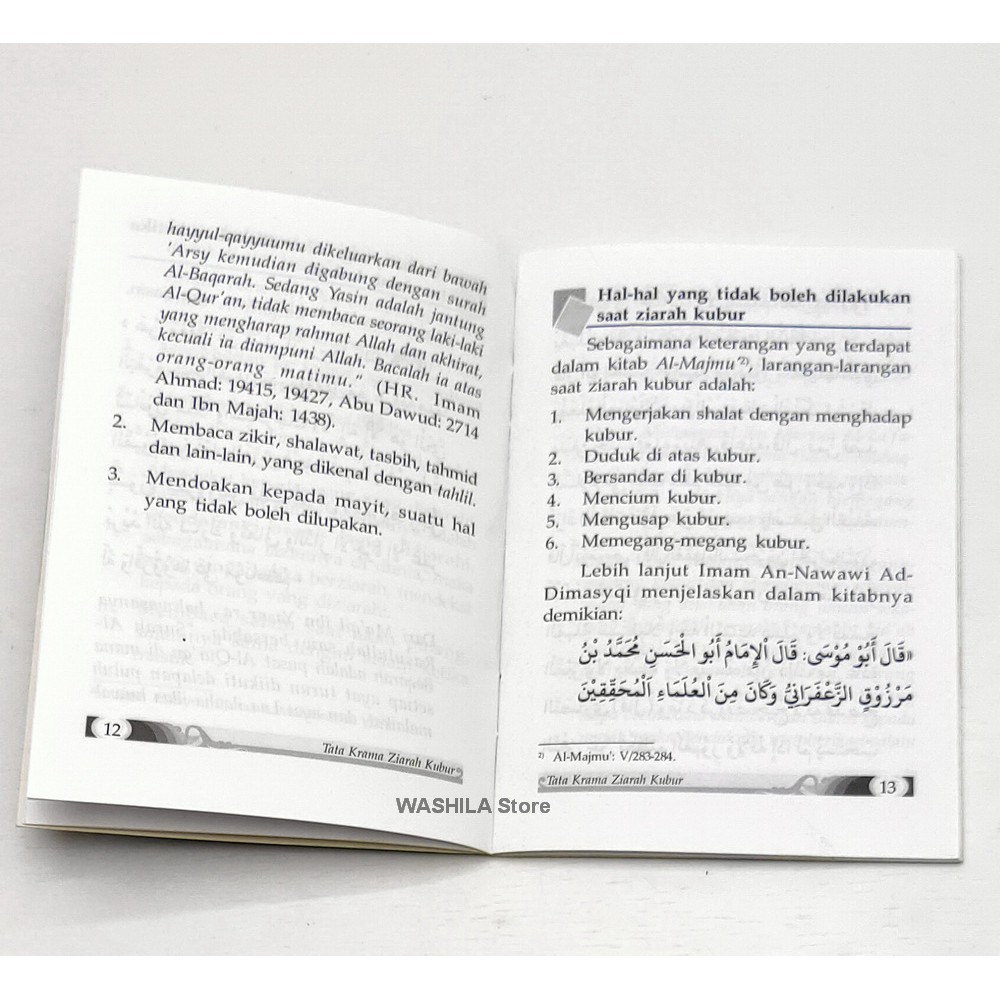 hayyul-qayyuumu dikeluarkan dari bawah
'Arsy kemudian digabung dengan surah
Al-Baqarah. Sedang Yasin adalah jantung
Al-Qur'an, tidak membaca seorang laki-laki
yang mengharap rahmat Allah dan akhirat,
kecuali ia diampuni Allah. Bacalah ia atas
orang-orang matimu." (HR. Imam
Ahmad: 19415, 19427, Abu Dawud: 2714
dan Ibn Majah: 1438).
2. Membaca zikir, shalawat, tasbih, tahmid
dan lain-lain, yang dikenal dengan tahlil.
3. Mendoakan kepada mayit, suatu hal
yang tidak boleh dilupakan.
12
Tata Krama Ziarah Kubur
Hal-hal yang tidak boleh dilakukan
saat ziarah kubur
Sebagaimana keterangan yang terdapat
dalam kitab Al-Majmu'²⁾, larangan-larangan
saat ziarah kubur adalah:
1. Mengerjakan shalat dengan menghadap
kubur.
2. Duduk di atas kubur.
3. Bersandar di kubur.
4. Mencium kubur.
5. Mengusap kubur.
6. Memegang-megang kubur.
Lebih lanjut Imam An-Nawawi Ad-
Dimasyqi menjelaskan dalam kitabnya
demikian:
«قَالَ أَبُوْ مُوْسَى: قَالَ اْلإِمَامُ أَبُو الْحَسَنِ مُحَمَّدُ بْنُ
مَرْزُوْقٍ الزَّعْفَرَانِيُّ وَكَانَ مِنَ الْعُلَمَاءِ الْمُحَقِّقِيْنَ
²⁾ Al-Majmu': V/283-284.
Tata Krama Ziarah Kubur
13
WASHILA Store